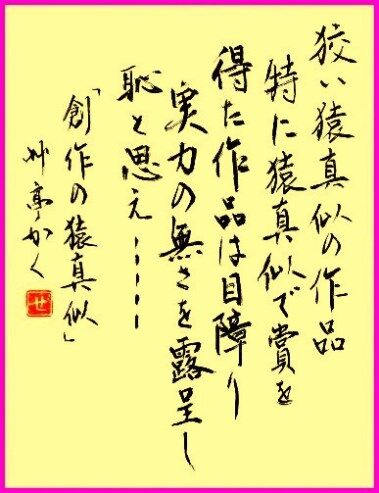 狡い猿真似の作品
特に猿真似で賞を
得た作品は目障り
実力の無さを露呈し
恥と思え・・・・・
「創作の猿真似」
艸亭かく
せ